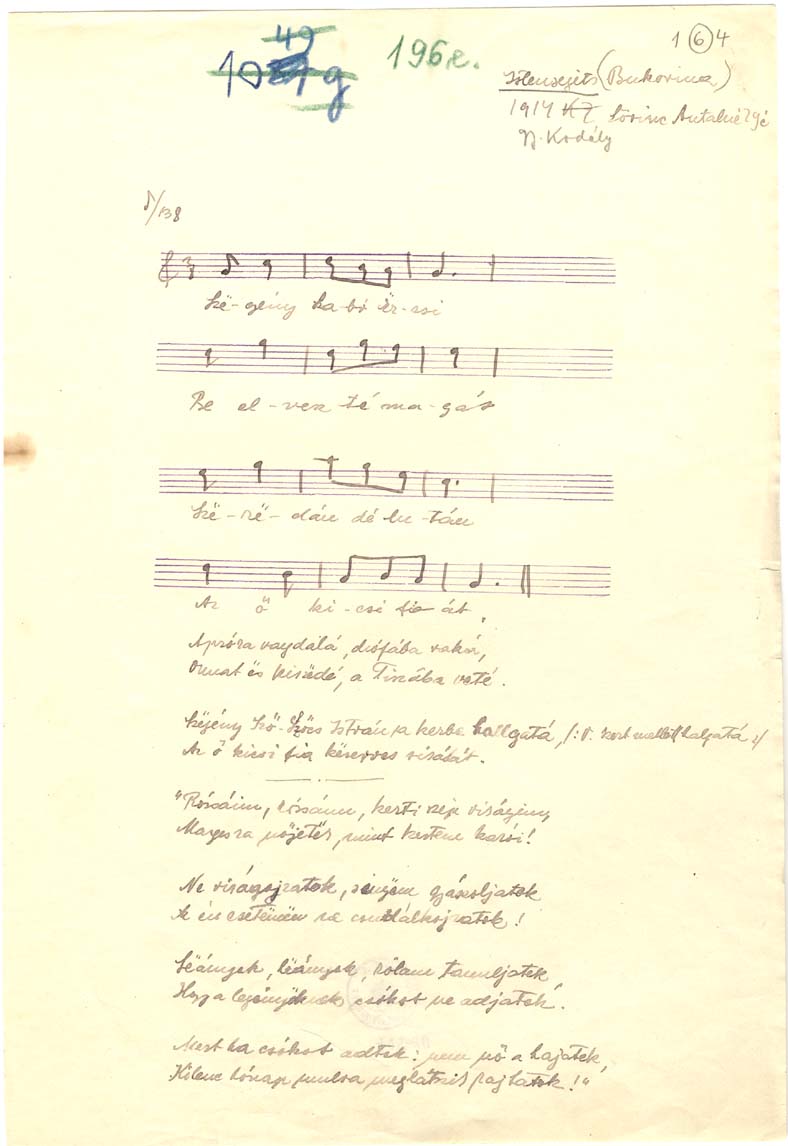 49
196e.
1 6 4
Istensegits (Bukovina)
1914 KZ Lőrinc Antalné
Gy. Kodály
138
Szë-gény Sza-bó Ër-zsi
Be el-vesz-té ma-gát
Szë-rë-dán dé-lu-tán
Az ő ki-csi fia-át,
Apróra vagdalá, diófába raká,
Onnat és kiszedé, a Tiszába veté.
Szëgény Szűcs István a kerbe hallgatá, /: V. kert mellett halgatá :/
Az ő kicsi fia keserves risását.
"Rózsáim, rózsáim, kerti szép virágim,
Magosra nőjetëk, mint kertem karói!
Ne virágojzatok, gyászoljatok
Az én esetëmën ne csudálkojzatok!
Lëányok, lëányok, rólam tanuljatok,
Hogy a legënyöknek csókot ne adjatok.
Mert ha csókot adtok: nem nő a hajatok,
Kilenc hónap mulva meglátszik rajtatok!"